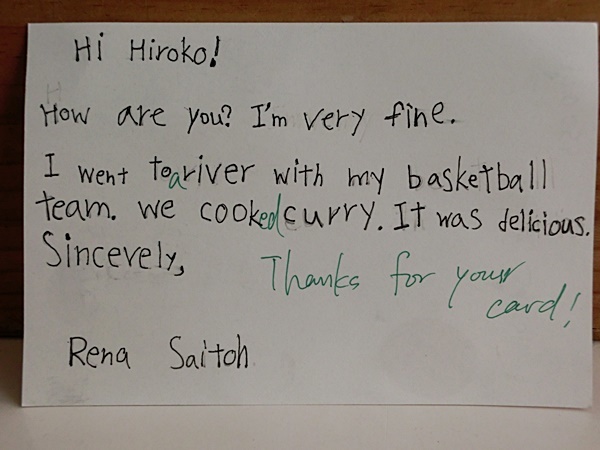 Hi Hiroko!
How are you? I'm very fine.
I went to a river with my basketball
team. We cooked curry. It was delicious.
Sincevely,
Thanks for your
card!
Rena Saitoh